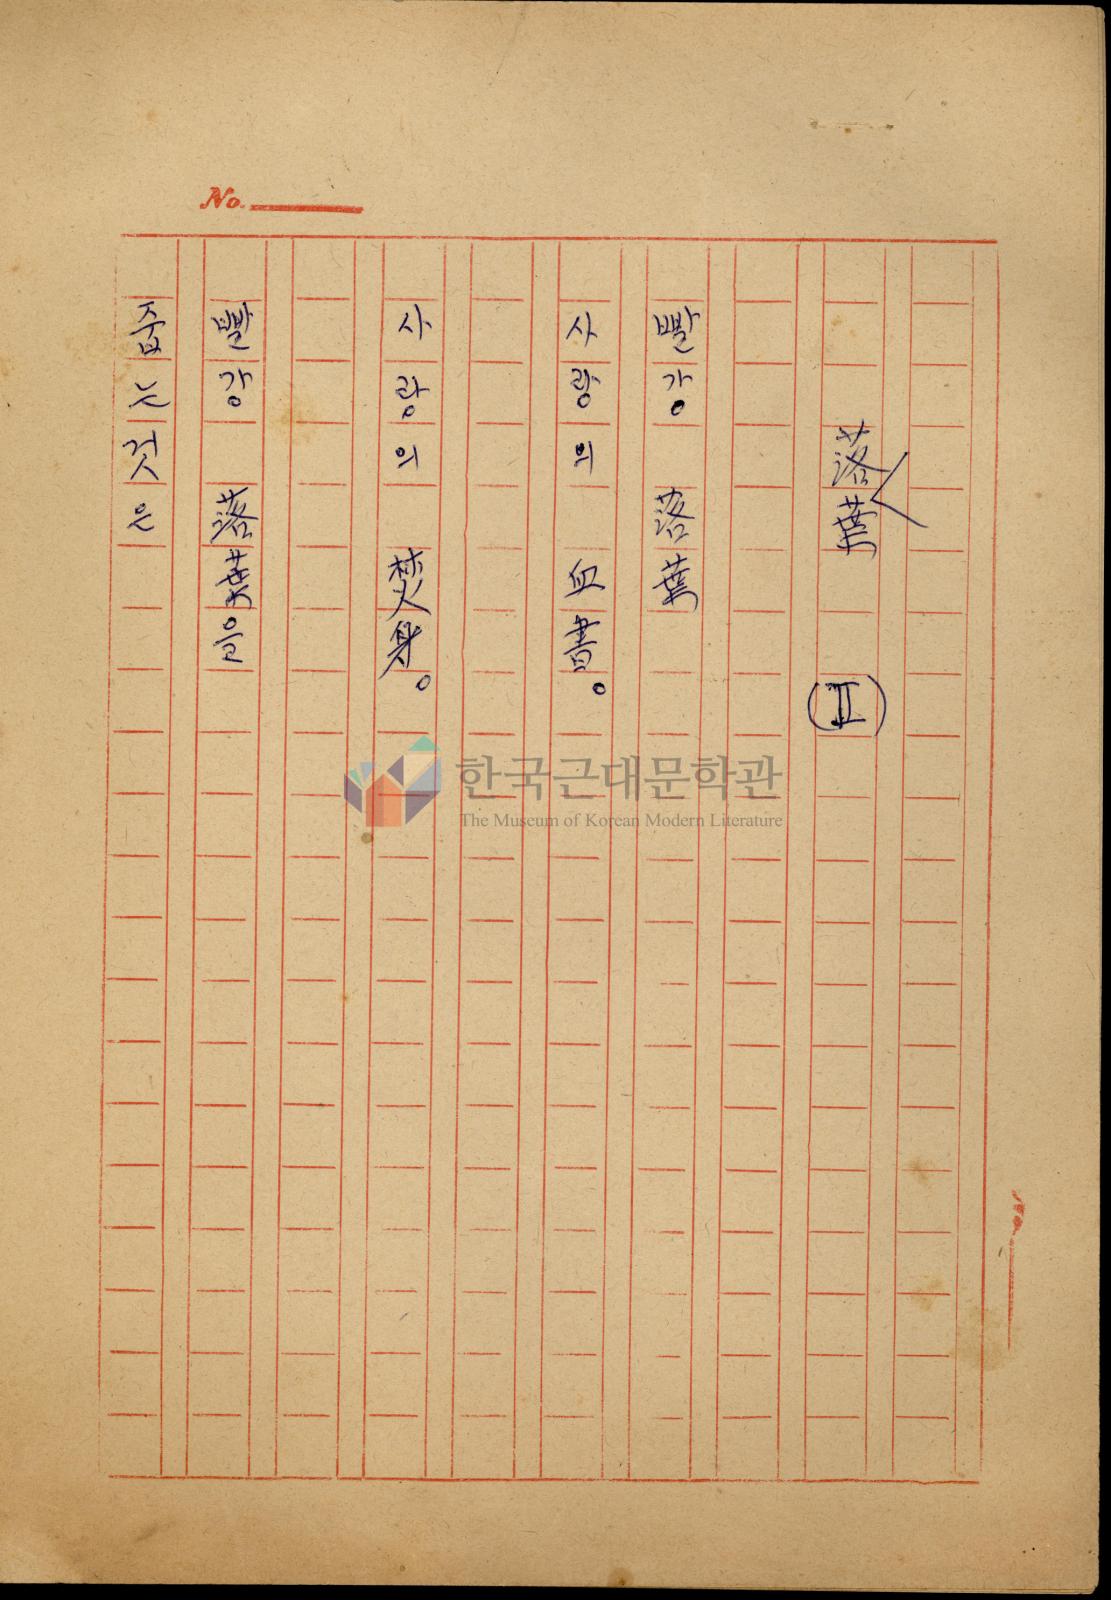 No.
落葉 (Ⅱ)
빨강 落葉
사랑의 血書。
사랑의 焚身。
빨강 落葉을
줍는것은
한국근대문학관
The Museum of Korean Modern Literature